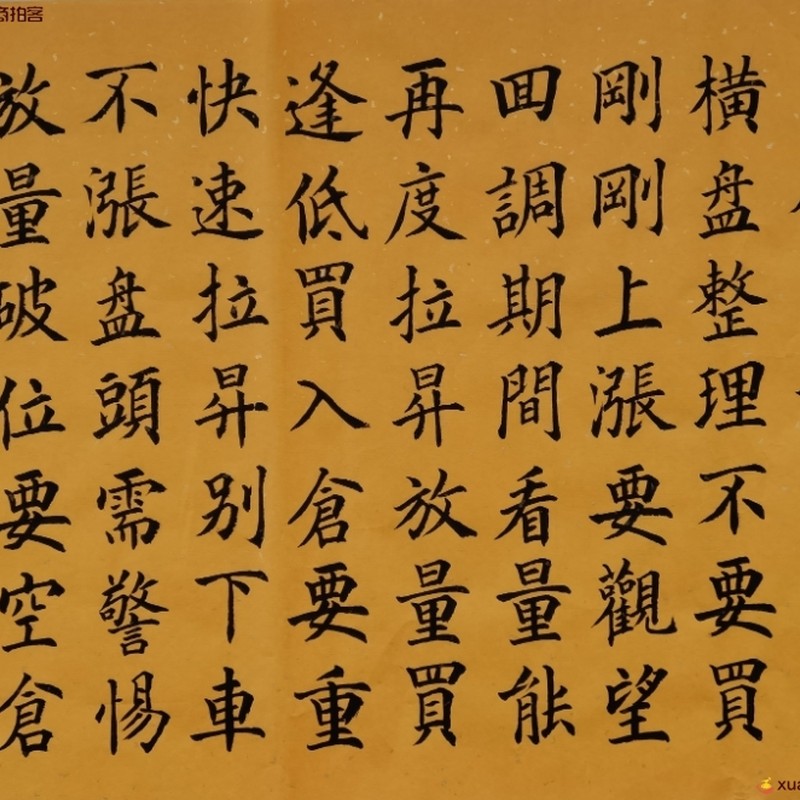 横盘整理不要買
剛剛上漲要觀望
回調期間看量能
再度拉昇放量買
逢低買入倉要重
快速拉昇别下車
不漲盘頭需警惕
放量破位要空倉
拍客
xua